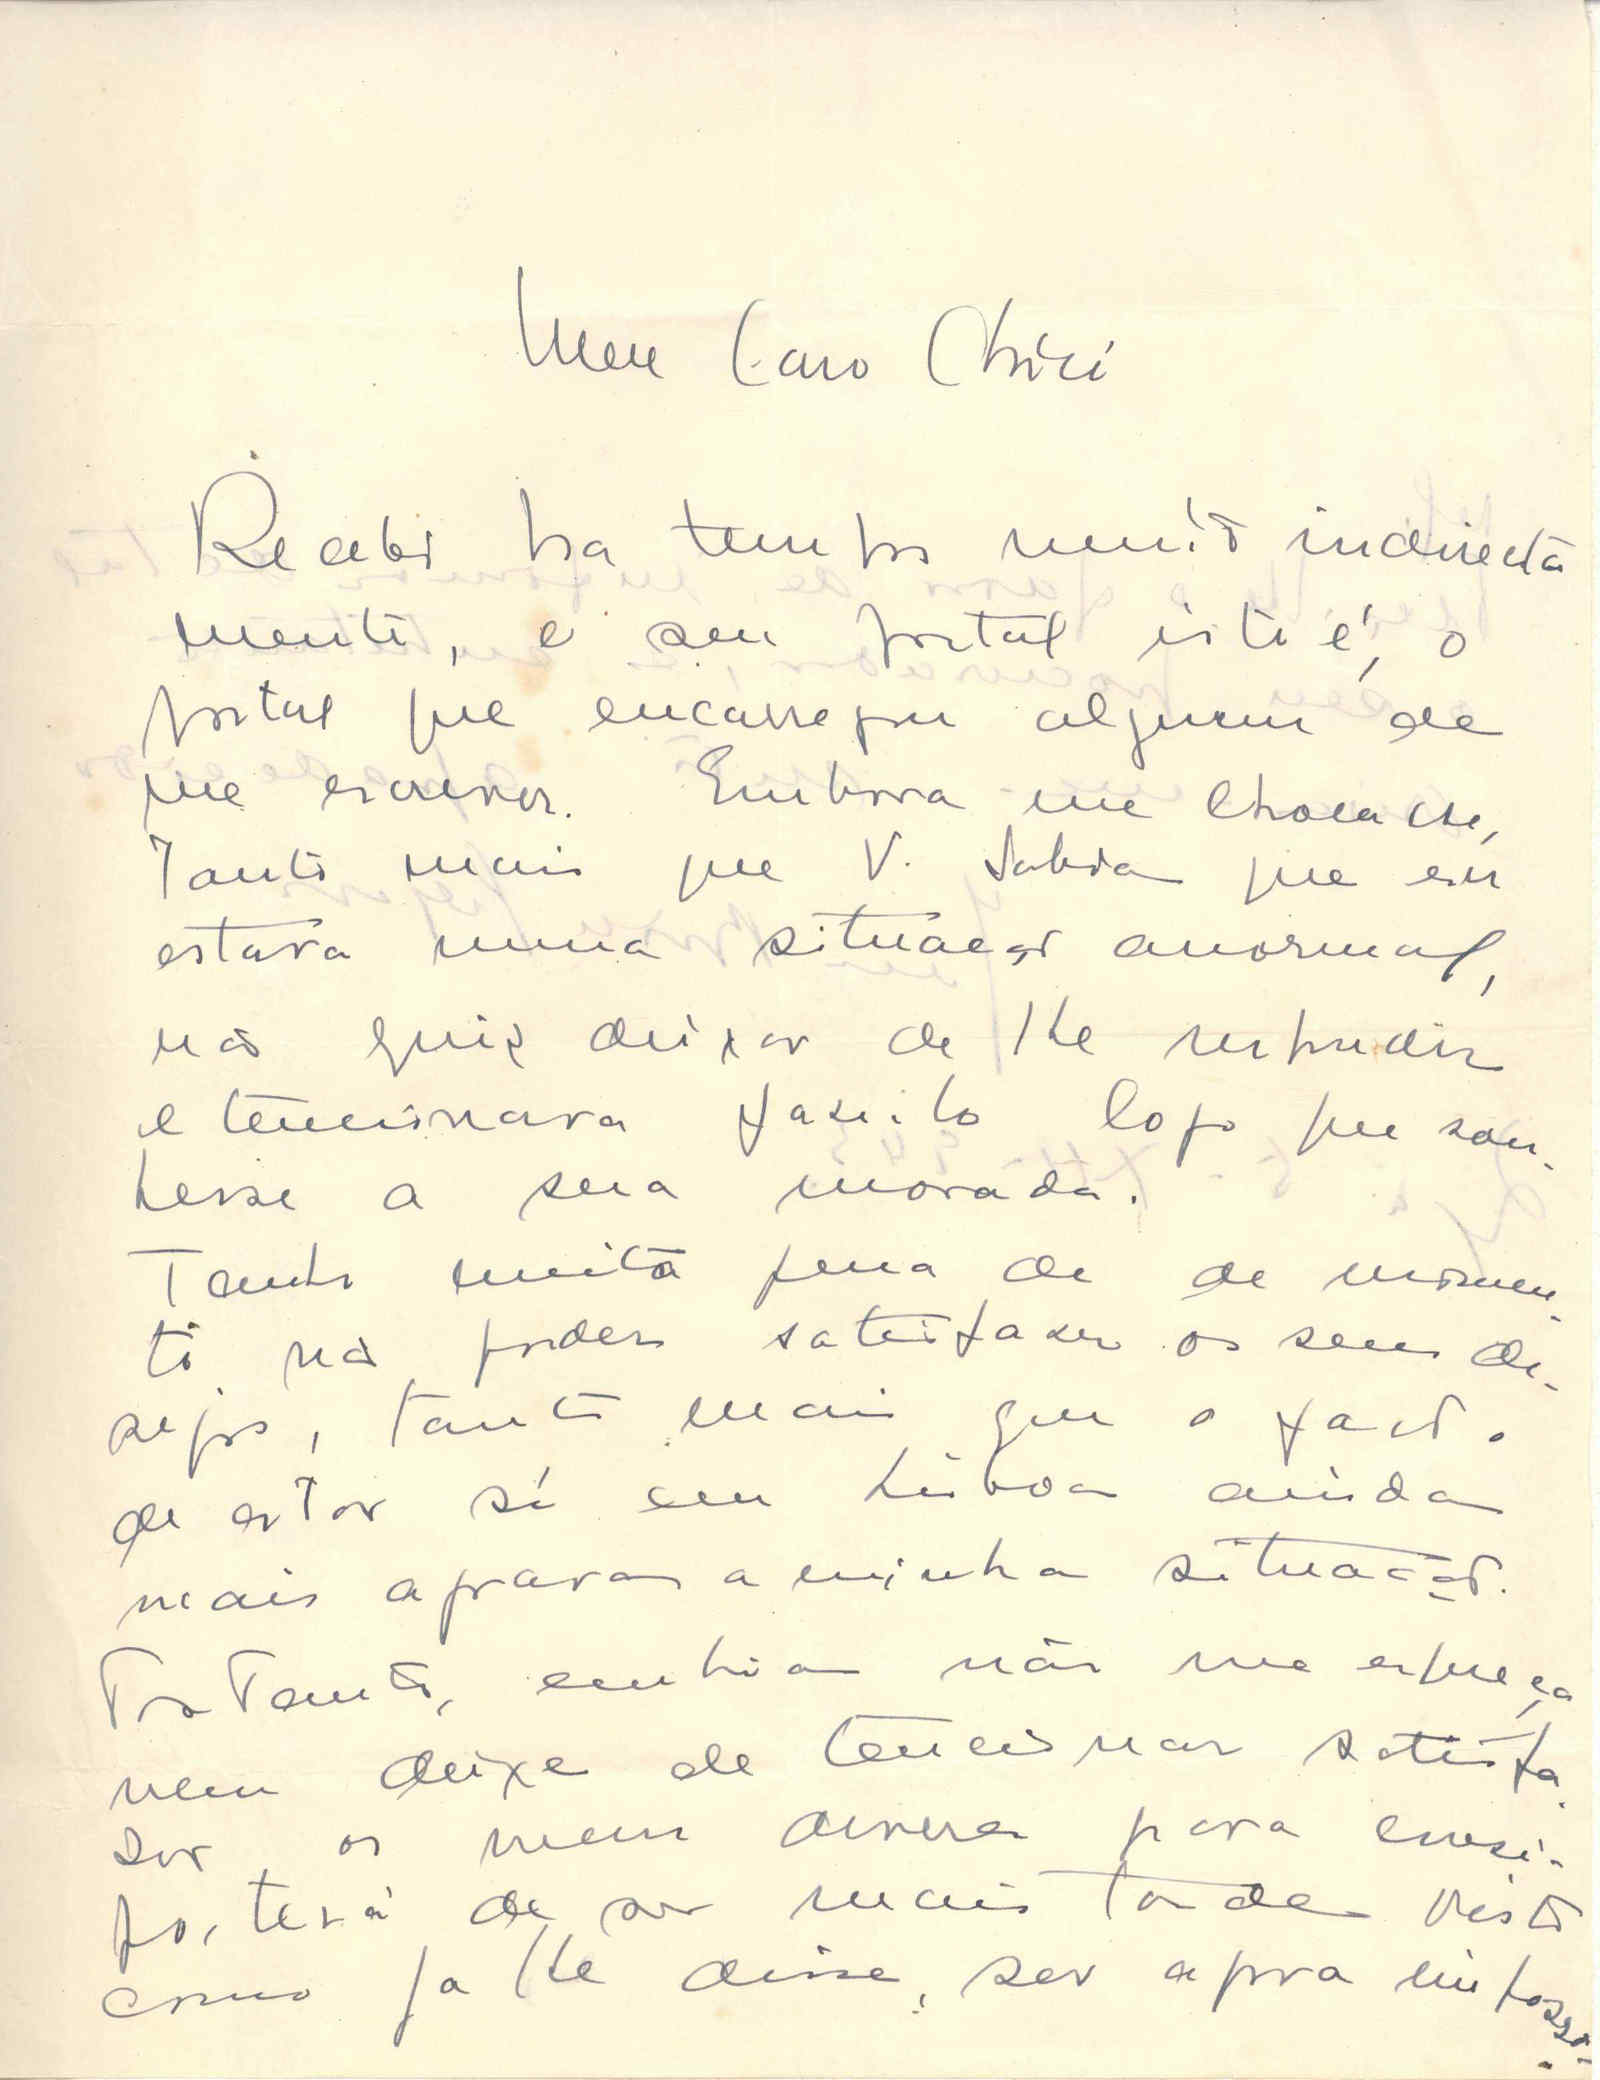 Meu Caro Chici
Recebi ha tempos muito indirecta
mente, o seu postal isto é, o
postal que encarregou alguem de
me escrever. Embora me chocasse,
Tanto mais que V. sabia que eu
estava numa situação anormal,
não quiz deixar de lhe responder
e tencionava faze-lo logo que sou-
besse a sua morada.
Tenho muita pena de de momen-
to não poder satisfazer os seus de-
sejos, tanto mais que o facto
de estar só em Lisboa ainda
mais agrava a minha situação.
Portanto, embora não me esqueça
nem deixe de tencionar satisfa-
zer os meus deveres para consi-
go, terá de ser mais tarde visto
como ja lhe disse, ser agora impossi-